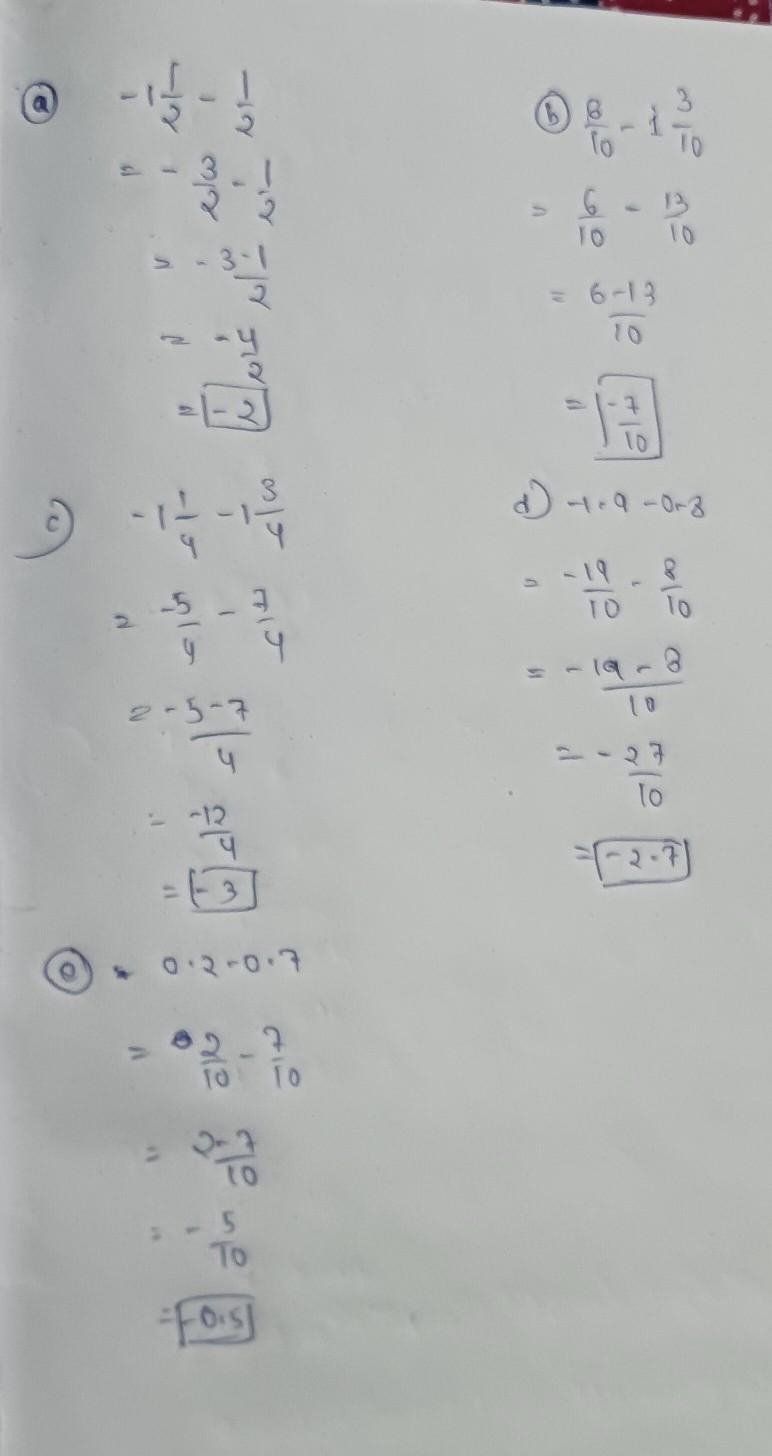 ⓐ -1 1/2 - 1/2
= - 3/2 - 1/2
= -3-1/2
= -4/2
= -2
ⓑ 8/10 - 1 3/10
= 6/10 - 13/10
= 6-13/10
= -7/10
c) -1 1/4 - 1 3/4
= -5/4 - 7/4
= -5-7/4
= -12/4
= -3
d) -1.9 - 0.8
= -19/10 - 8/10
= -19-8/10
= -27/10
= -2.7
ⓔ 0.2-0.7
= 2/10 - 7/10
= 2-7/10
= -5/10
= -0.5